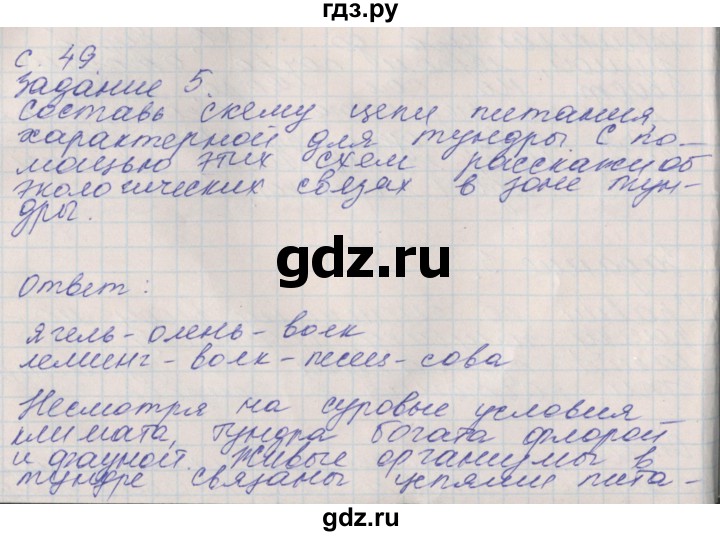 гдз.ру
с. 49
Задание 5.
Составь схему цепи питания,
характерной для тундры. С по-
мощью этих схем расскажи об
экологических связях в зоне тун-
дры.
gdz.ru
Ответ:
ягель - олень - волк
лемминг - волк - песец - сова
Несмотря на суровые условия
климата, тундра богата флорой
и фауной. Живые организмы в
тундре связаны цепями пита-
gdz.ru